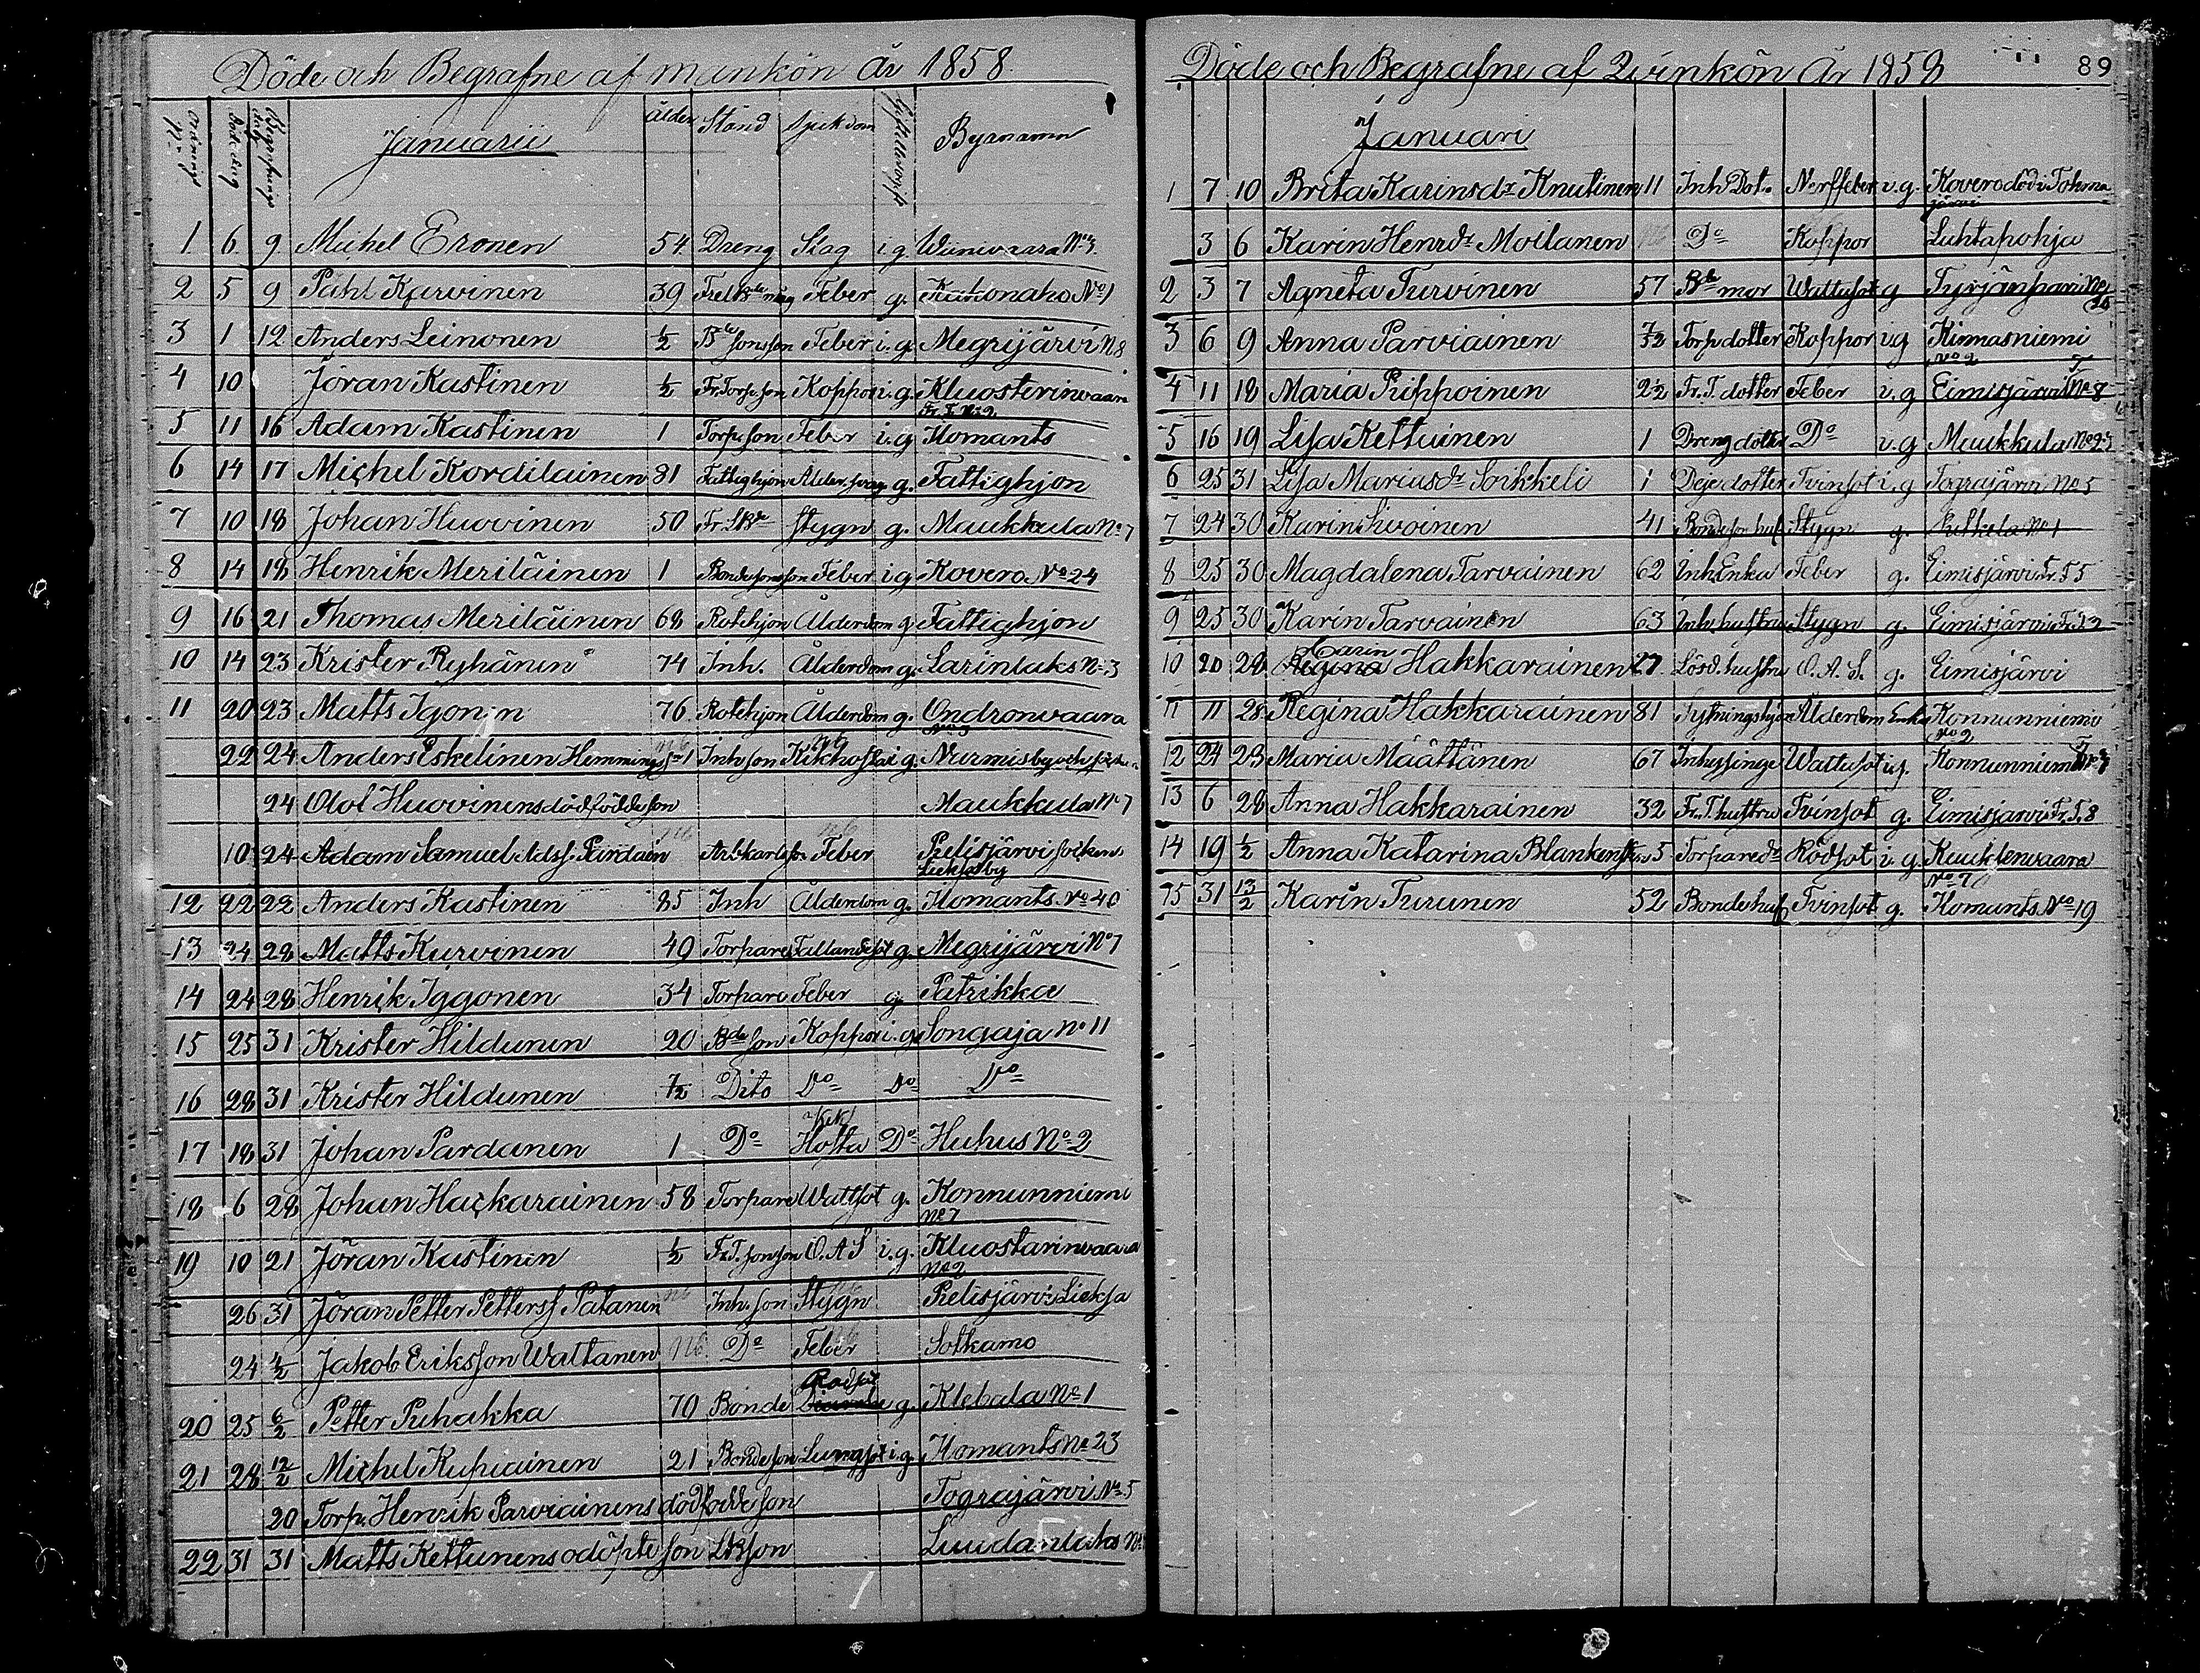 Döde och Begrafne af mankön År 1858.
Ordnings No Döde dag Begrafnings dag Januarii Ålder Stånd Sjukdom Bynamn
1 6 9 Michel Eronen 54 Dreng Slag i g No 3.
2 5 9 Påhl Kurvinen 39 Feber g. No 1
3 1 12 Anders Leinonen 1/2 Bde sonson Feber i. g. Megrijärvi N 8
4 10 Jöran Kastinen 1/2 Fr. Torp. son Koppor i. g. Kluosterinvaara
Fr. T. No 2
5 11 16 Adam Kastinen 1 Torp. son Feber i. g Ilomants
6 14 17 Michel Kordilainen 81 Fattighjon Ålder. svag g. Fattighjon
7 10 18 Johan Huovinen 50 Stygn g. Maukkula No 7
8 14 18 Henrik Meriläinen 1 Bondesonson Feber i g Kovero No 24
9 16 21 Thomas Meriläinen 68 Rotehjon Ålderdom g Fattighjon
10 14 23 Krister Ryhänen 74 Inh. Ålderdom g. Sarinlaks No 3
11 20 23 Matts Igonen 76 Rotehjon Ålderdom g. Ondronvaara
22 24 Anders Eskelinen Hemmings sn 1 Inh son Kikhosta i g. Nurmis
24 Olof Huovinens dödfödde son Maukkula No 7
10 24 Adam Samuel Feber Pielisjärvi socken
Lieksaby
12 22 22 Anders Kastinen 85 Inh Ålderdom g. Ilomants No 40
13 24 28 Matts Kurvinen 49 Torpare Fallandesot g. Megrijärvi No 7
14 24 28 Henrik Iggonen 34 Torpare Feber g Patrikka
15 25 31 Krister Hildunen 20 Bde son Koppor i. g. Songaja No 11
16 28 31 Krister Hildunen 7/12 Dito Do Do Do
17 18 31 Johan Pardanen 1 Do Kik Hosta Do Huhus No 2
18 6 28 Johan Hackarainen 58 Torpare Wattsot g. Konnunniemi
No 7
19 10 21 Jöran Kastinen 1/2 Fr. T. sonson O. A S i. g. Kluostarinvaara
No 2
26 31 Jöran Petter Petterss Patanen Inh. son Stygn Pielisjärvi Lieksa
24 4/2 Jakob Eriksson Wattanen Nb Do Feber Sotkamo
20 25 6/2 Petter Puhakka 70 Bonde Rödsot g. Klebala No 1
21 28 12/2 Michel Kupiainen 21 Bondeson Lungsot i g. Ilomants No 23
20 Torp. Henrik Parviainens dödfödde son Tograjärvi No 5
22 31 31 Matts Kettunens odöpte son Luudanlaks No
Döde och Begrafne af Qvinkön År 1858 89
Januari
1 7 10 Brita Karinsdr Knutinen 11 Inh Dot. Nerffeber i. g. Kovero död i Tohma
järvi
3 6 Karin Henrdr Moilanen Do Koppor Luhtapohja
2 3 7 Agneta Turvinen 57 Bde mor Wattusot g Tyrjänsaari No
3 6 9 Anna Parviainen 7/12 Torp dotter Koppor i g Kinnasniemi
No 2
4 11 18 Maria Piippoinen 2 1/2 Fr. T. dotter Feber i. g Eimisjärvi T No 8
5 16 19 Lisa Kettuinen 1 Dreng dotter Do i. g Maukkula No 23
6 25 31 Lisa Mariasdr Soikkeli 1 Deje dotter Tvinsot i. g Tograjärvi No 5
7 24 30 Karin Sivoinen 41 Bondeson hust Stygn g. No 1
8 25 30 Magdalena Tarvainen 62 Inh. Enka Feber g. Eimisjärvi Fr. 55
9 25 30 Karin Tarvainen 63 Inh. hustru Stygn g. Eimisjärvi
10 20 28 Carin Hakkarainen 27 Lösd. hustru O. A. S. g. Eimisjärvi
11 11 28 Regina Hakkarainen 81 Sytningshjon Ålderdom Enka Konnunniemi
No 2
12 24 28 Maria Määttänen 67 Inhyssinge Wattusot i g. Konnunniemi
13 6 28 Anna Hakkarainen 32 Fr. T. hustru Tvinsot g. Eimisjärvi Fr. T. 8
14 19 1/2 Anna Katarina 5 Torparedr Rödsot i. g. Kuuklenvaara
No 7
15 31 13/2 Karin Turunen 52 Bonde hust Tvinsot g. Ilomants No 19